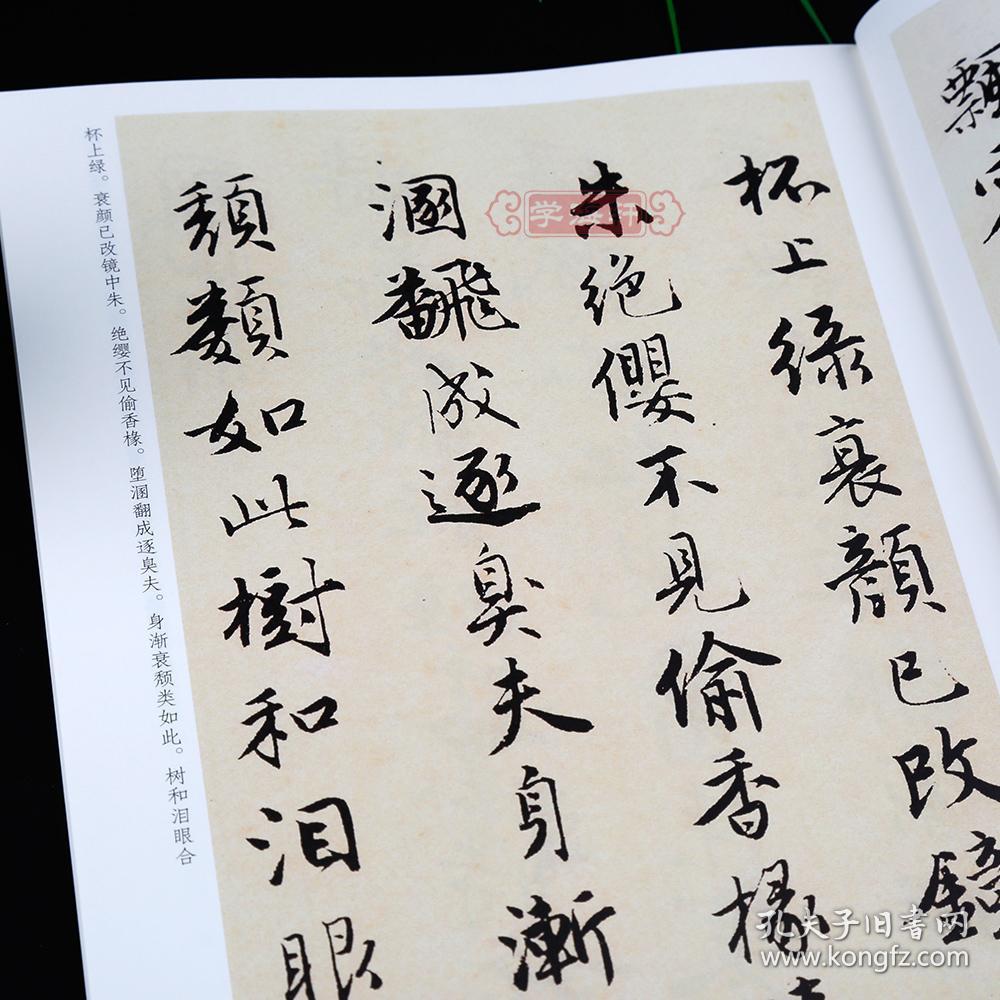 杯上綠衰顏已改鏡
朱絕纓不見偷香椽
溷飜成逐臭夫身漸
頽類如此樹和泪眼
杯上绿。衰颜已改镜中朱。绝缨不见偷香椽。堕溷翻成逐臭夫。身渐衰颓类如此。树和泪眼合
飄
学海轩
孔夫子旧书网
www.kongfz.com